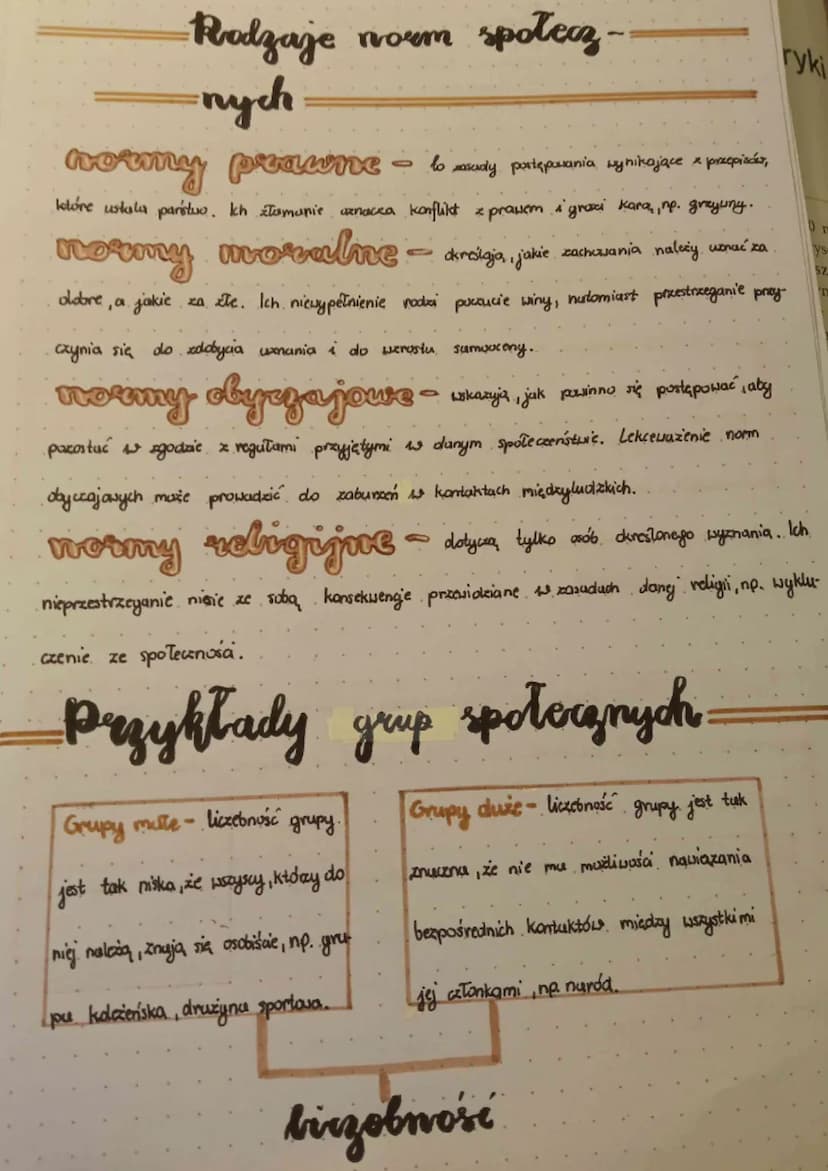 Rodzaje norm społecz-
nych
normy prawne - to zasady postępowania wynikające z przepisów,
które ustala państwo. Ich złamanie oznacza konflikt z prawem i grozi karą, np. grzywny.
normy moralne - określają, jakie zachowania należy uznać za
dobre, a jakie za złe. Ich niewypełnienie rodzi poczucie winy, natomiast przestrzeganie przy-
czynia się do zdobycia uznania i do wzrostu samooceny.
normy obyczajowe - wskazują, jak powinno się postępować, aby
pozostać w zgodzie z regułami przyjętymi w danym społeczeństwie. Lekceważenie norm
obyczajowych może prowadzić do zaburzeń w kontaktach międzyludzkich.
normy religijne - dotyczą tylko osób określonego wyznania. Ich
nieprzestrzeganie niesie ze sobą konsekwencje przewidziane w zasadach danej religii, np. wyklu-
czenie ze społeczności.
Przykłady grup społecznych
Grupy małe - liczebność grupy
jest tak niska, że wszyscy, którzy do
niej należą, znają się osobiście, np. gru-
pa koleżeńska, drużyna sportowa.
Grupy duże - liczebność grupy jest tak
znaczna, że nie ma możliwości nawiązania
bezpośrednich kontaktów między wszystkimi
jej członkami, np. naród.
liczebność
ryki